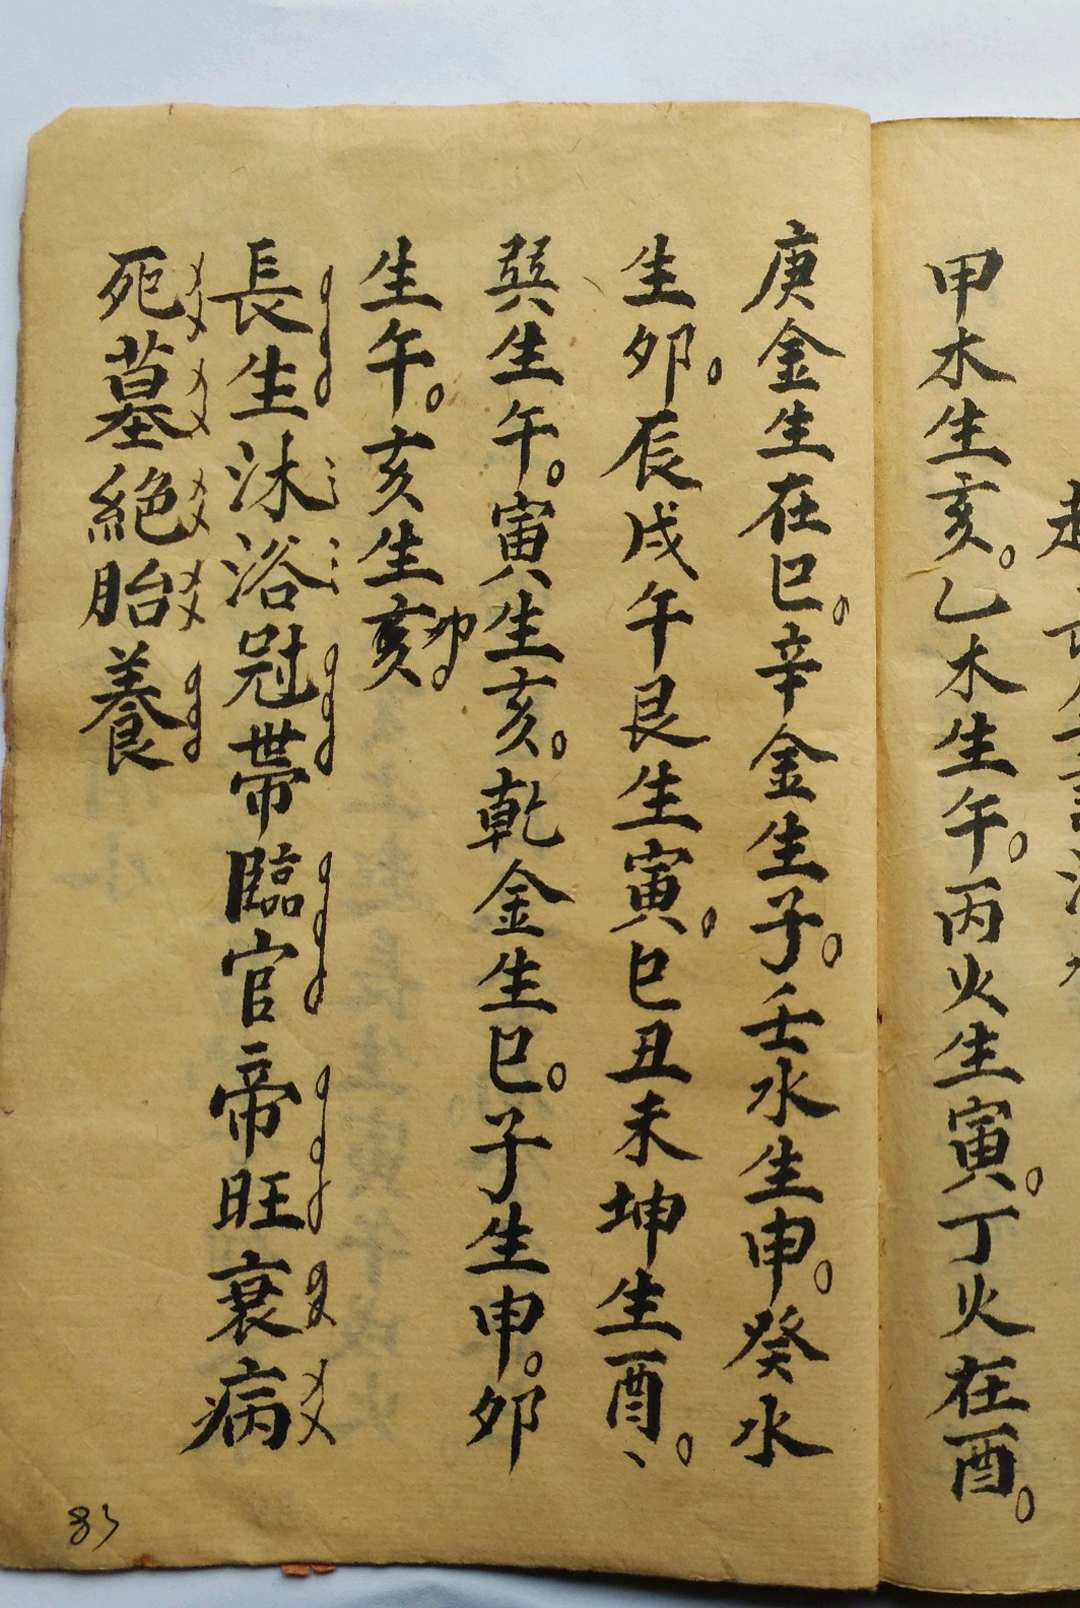 甲水生亥。乙木生午。丙火生寅。丁火在酉。
庚金生在巳。辛金生子。壬水生申。癸水
生卯。辰戌午艮生寅。巳丑未坤生酉、。
巽生午。寅生亥。乾金生巳。子生申。卯
生午。亥生亥卯。
長生沐浴冠帶臨官帝旺衰病
死墓絕胎養
83